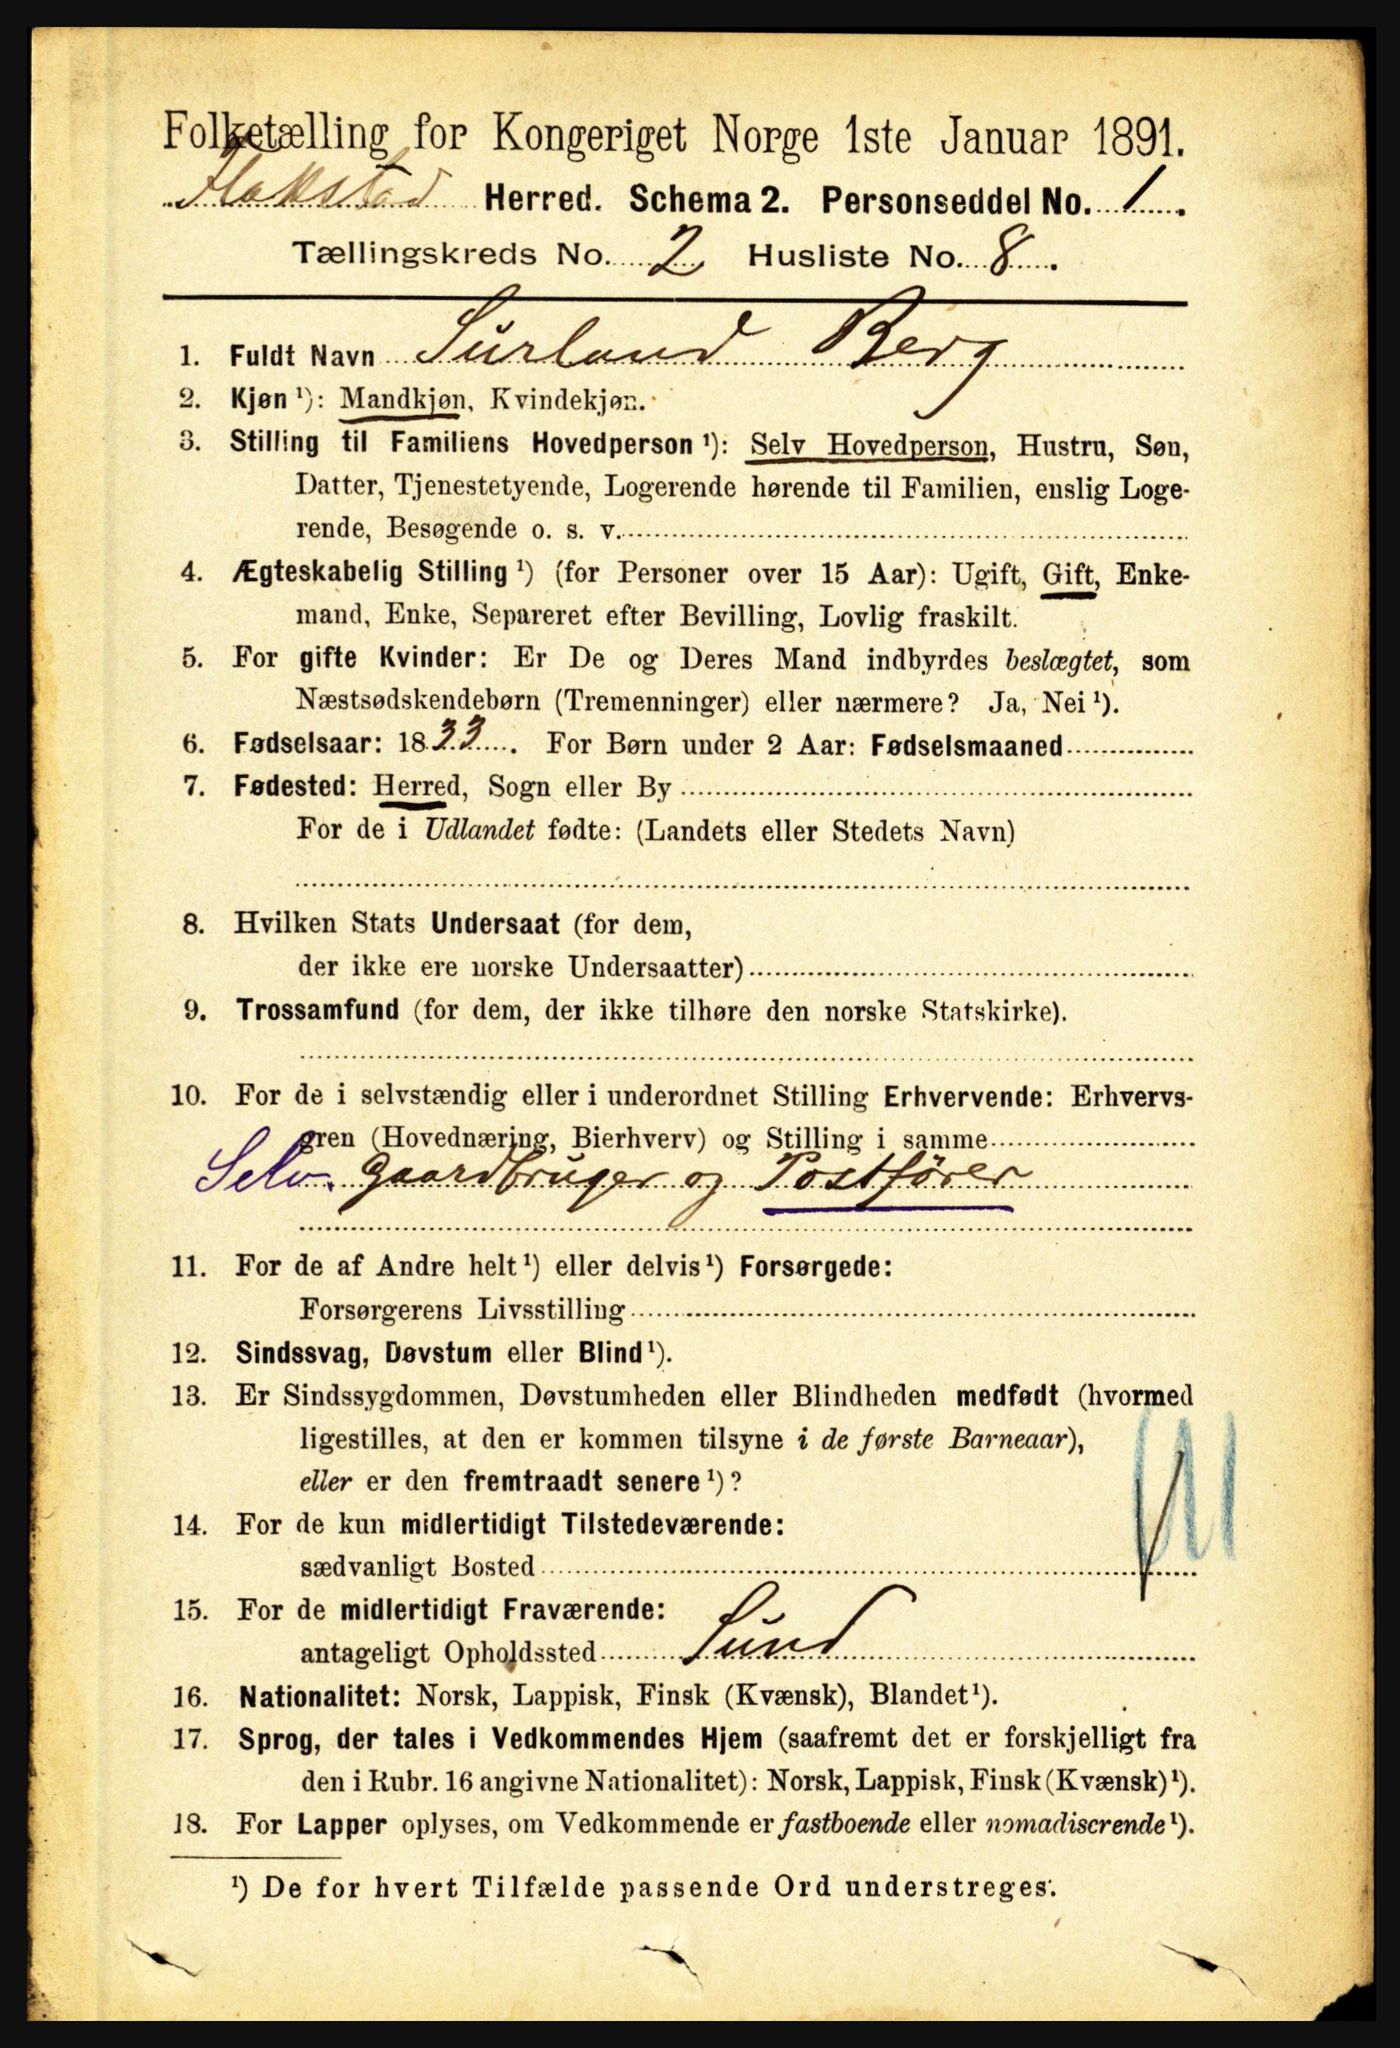 Folketælling for Kongeriget Norge 1ste Januar 1891.
Flakstad Herred. Schema 2. Personseddel No. 1.
Tællingskreds No. 2 Husliste No. 8.
1. Fuldt Navn Surland Berg
2. Kjøn ¹): Mandkjøn, Kvindekjøn.
3. Stilling til Familiens Hovedperson ¹): Selv Hovedperson, Hustru, Søn,
Datter, Tjenestetyende, Logerende hørende til Familien, enslig Loge-
rende, Besøgende o. s. v.
4. Ægteskabelig Stilling ¹) (for Personer over 15 Aar): Ugift, Gift, Enke-
mand, Enke, Separeret efter Bevilling, Lovlig fraskilt.
5. For gifte Kvinder: Er De og Deres Mand indbyrdes beslægtet, som
Næstsødskendebørn (Tremenninger) eller nærmere? Ja, Nei ¹).
6. Fødselsaar: 1833. For Børn under 2 Aar: Fødselsmaaned
7. Fødested: Herred, Sogn eller By
For de i Udlandet fødte: (Landets eller Stedets Navn)
8. Hvilken Stats Undersaat (for dem,
der ikke ere norske Undersaatter)
9. Trossamfund (for dem, der ikke tilhøre den norske Statskirke).
10. For de i selvstændig eller i underordnet Stilling Erhvervende: Erhvervs-
gren (Hovednæring, Bierhverv) og Stilling i samme
Selv. Gaardbruger og Postfører
11. For de af Andre helt ¹) eller delvis ¹) Forsørgede:
Forsørgerens Livsstilling
12. Sindssvag, Døvstum eller Blind ¹).
13. Er Sindssygdommen, Døvstumheden eller Blindheden medfødt (hvormed
ligestilles, at den er kommen tilsyne i de første Barneaar),
eller er den fremtraadt senere ¹)?
14. For de kun midlertidigt Tilstedeværende:
sædvanligt Bosted
15. For de midlertidigt Fraværende:
antageligt Opholdssted Sund
16. Nationalitet: Norsk, Lappisk, Finsk (Kvænsk), Blandet ¹).
17. Sprog, der tales i Vedkommendes Hjem (saafremt det er forskjelligt fra
den i Rubr. 16 angivne Nationalitet): Norsk, Lappisk, Finsk (Kvænsk) ¹).
18. For Lapper oplyses, om Vedkommende er fastboende eller nomadiserende ¹).
¹) De for hvert Tilfælde passende Ord understreges.